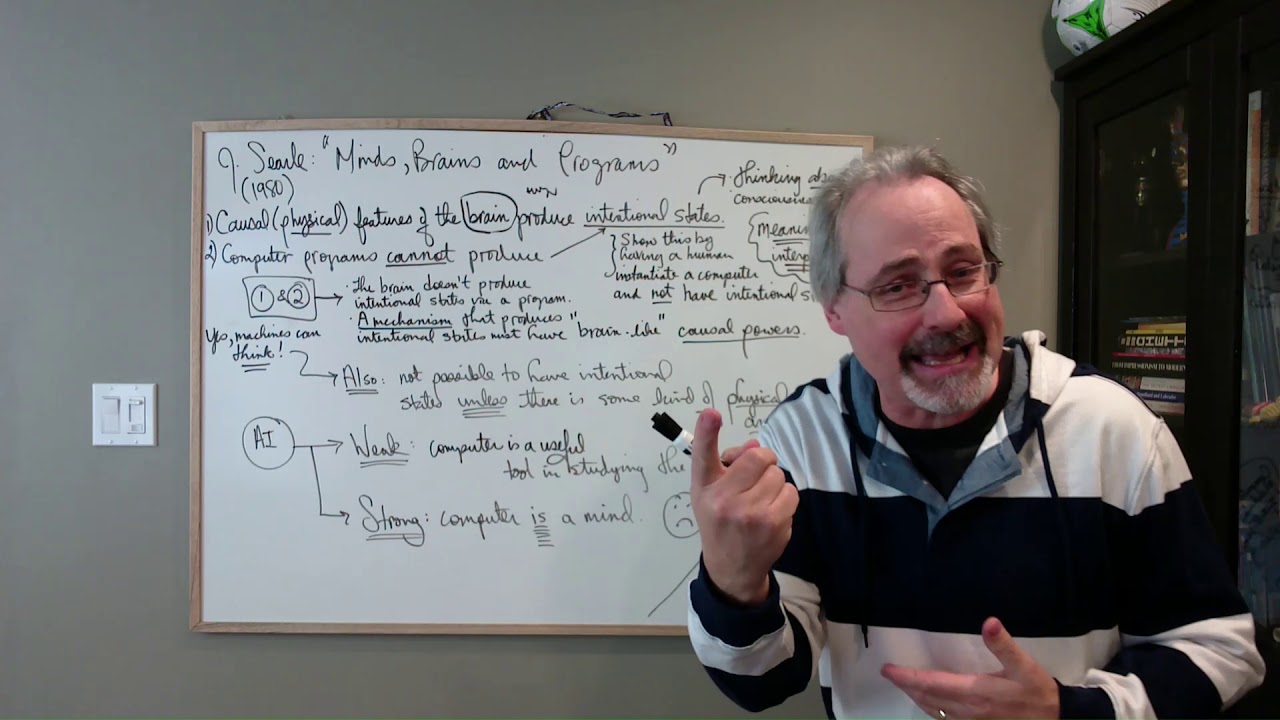 J. Searle: "Minds, Brains and Programs"
(1980)
1) Causal (physical) features of the brain produce intentional states.
thinking
consciousness
2) Computer programs cannot produce
Show this by
having a human
instantiate a computer
and not have intentional
1 & 2
• the brain doesn't produce
intentional states via a program.
• A mechanism that produces "brain-like" causal powers.
intentional states must have
Yes, machines can
think!
Also: not possible to have intentional
states unless there is some kind of physical
AI
Weak: computer is a useful
tool in studying the
Strong: computer is a mind.
FROM IMPRESSIONISM TO MODERN